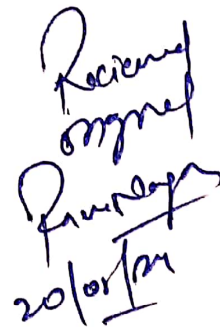 Recieved
original
20/01/24